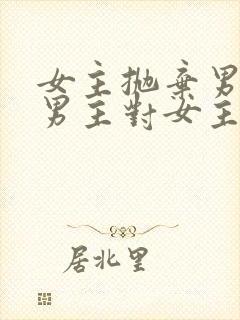 女主拋棄男
男主對女主
居北里